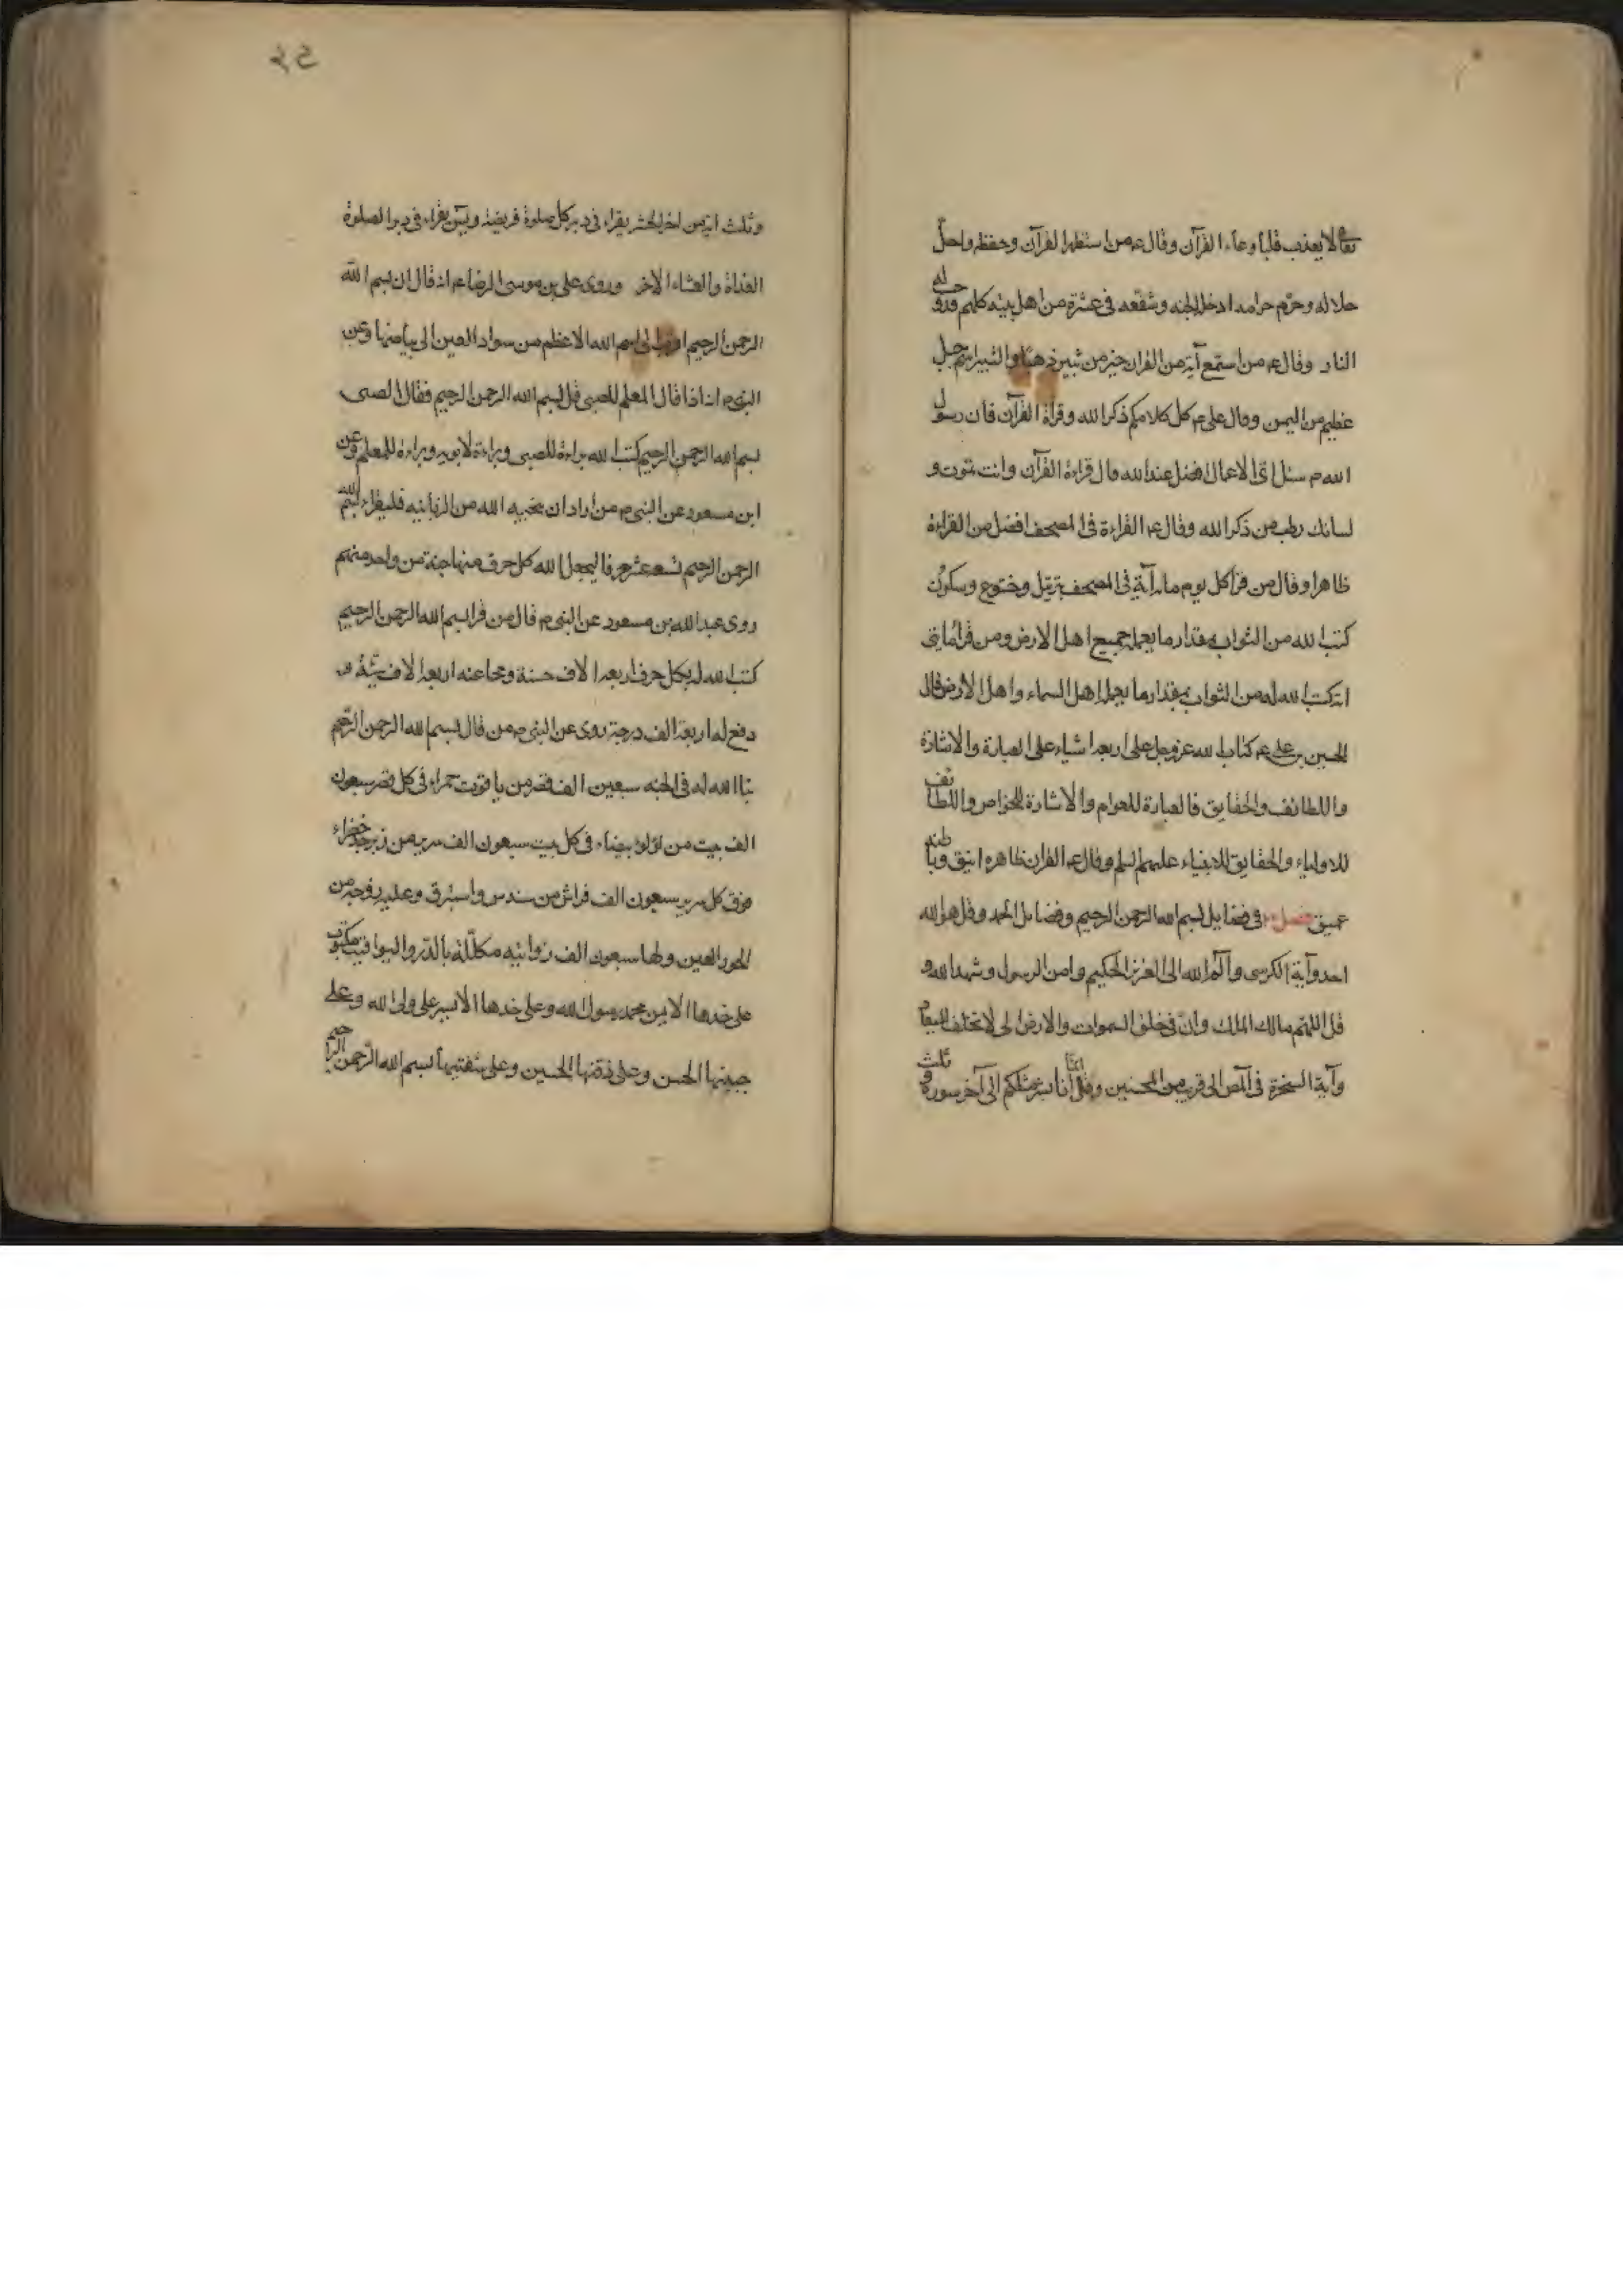 تعالى لا يعذب قلبا وعاء القرآن وقال عم من استظهر القرآن وحفظه واحل
حلاله وحرم حرامه ادخله الجنه وشفعه في عشرة من اهل بيته كلهم قد وجب له
النار وقال عم من استمع آية من القران خير من ثبير ذهبا والثبير اسم جبل
عظيم من اليمن وقال علي عم كل كلامكم ذكر الله وقراءة القرآن فان رسول
الله ص سئل اى الاعمال افضل عند الله قال قراءة القرآن وانت تموت و
لسانك رطب من ذكر الله وقال عم القراءة في المصحف افضل من القراءة
ظاهرا وقال من قرأ كل يوم مائة آية في المصحف بترتيل وخشوع وسكون
كتب الله من الثواب بمقدار ما يعمله جميع اهل الارض ومن قرأ مائتى
اية كتب الله له من الثواب بمقدار ما يعمله اهل السماء واهل الارض قال
الحسين بن علي عم كتاب الله عز وجل على اربعة اشياء على العبارة والاشارة
واللطائف والحقايق فالعبارة للعوام والاشارة للخواص واللطائف
للاولياء والحقايق للانبياء عليهم السلم وقال عم القران ظاهره انيق وباطنه
عميق فصل في فضايل بسم الله الرحمن الرحيم وفضايل الحمد وقل هو الله
احد وآية الكرسى والم الله الى العزيز الحكيم وامن الرسول وشهد الله و
قل اللهم مالك الملك وان في خلق السموات والارض الى لا تخلف الميعاد
وآية السخرة في المص الى قريب من المحسنين وقل انما انا بشر مثلكم الى آخر سورة و ثلث
وثلث اية من اخر الحشر يقراء في دبر كل صلوة فريضة ويس يقراء في دبر الصلوة
الغداة والعشاء الاخر وروى علي بن موسى الرضا عم انه قال ان بسم الله
الرحمن الرحيم اقرب الى اسم الله الاعظم من سواد العين الى بياضها وعن
النبى ص انه اذا قال المعلم للصبى قل بسم الله الرحمن الرحيم فقال الصبى
بسم الله الرحمن الرحيم كتب الله براءة للصبى وبراءة لابويه وبراءة للمعلم وعن
ابن مسعود عن النبى ص من أراد ان ينجيه الله من الزبانيه فليقراء بسم الله
الرحمن الرحيم تسعه عشر حرفا ليجعل الله كل حرف منها جنة من واحد منهم
روى عبد الله بن مسعود عن النبى ص قال من قرا بسم الله الرحمن الرحيم
كتب الله له بكل حرف اربعة الاف حسنة ومحا عنه اربعة الاف سيئة و
رفع له اربعة الف درجة روى عن النبى ص من قال بسم الله الرحمن الرحيم
بنا الله له في الجنه سبعين الف قصر من ياقوت حمراء في كل قصر سبعون
الف بيت من لؤلؤ بيضاء في كل بيت سبعون الف سرير من زبرجد خضراء
فوق كل سرير سبعون الف فراش من سندس واستبرق وعليه زوجة من
الحور العين ولها سبعون الف ذوابيه مكللة بالدر واليواقيت مكتوب
على خدها الايمن محمد رسول الله وعلى خدها الايسر على ولى الله وعلى
جبينها الحسن وعلى ذقنها الحسين وعلى شفتيها بسم الله الرحمن الرحيم